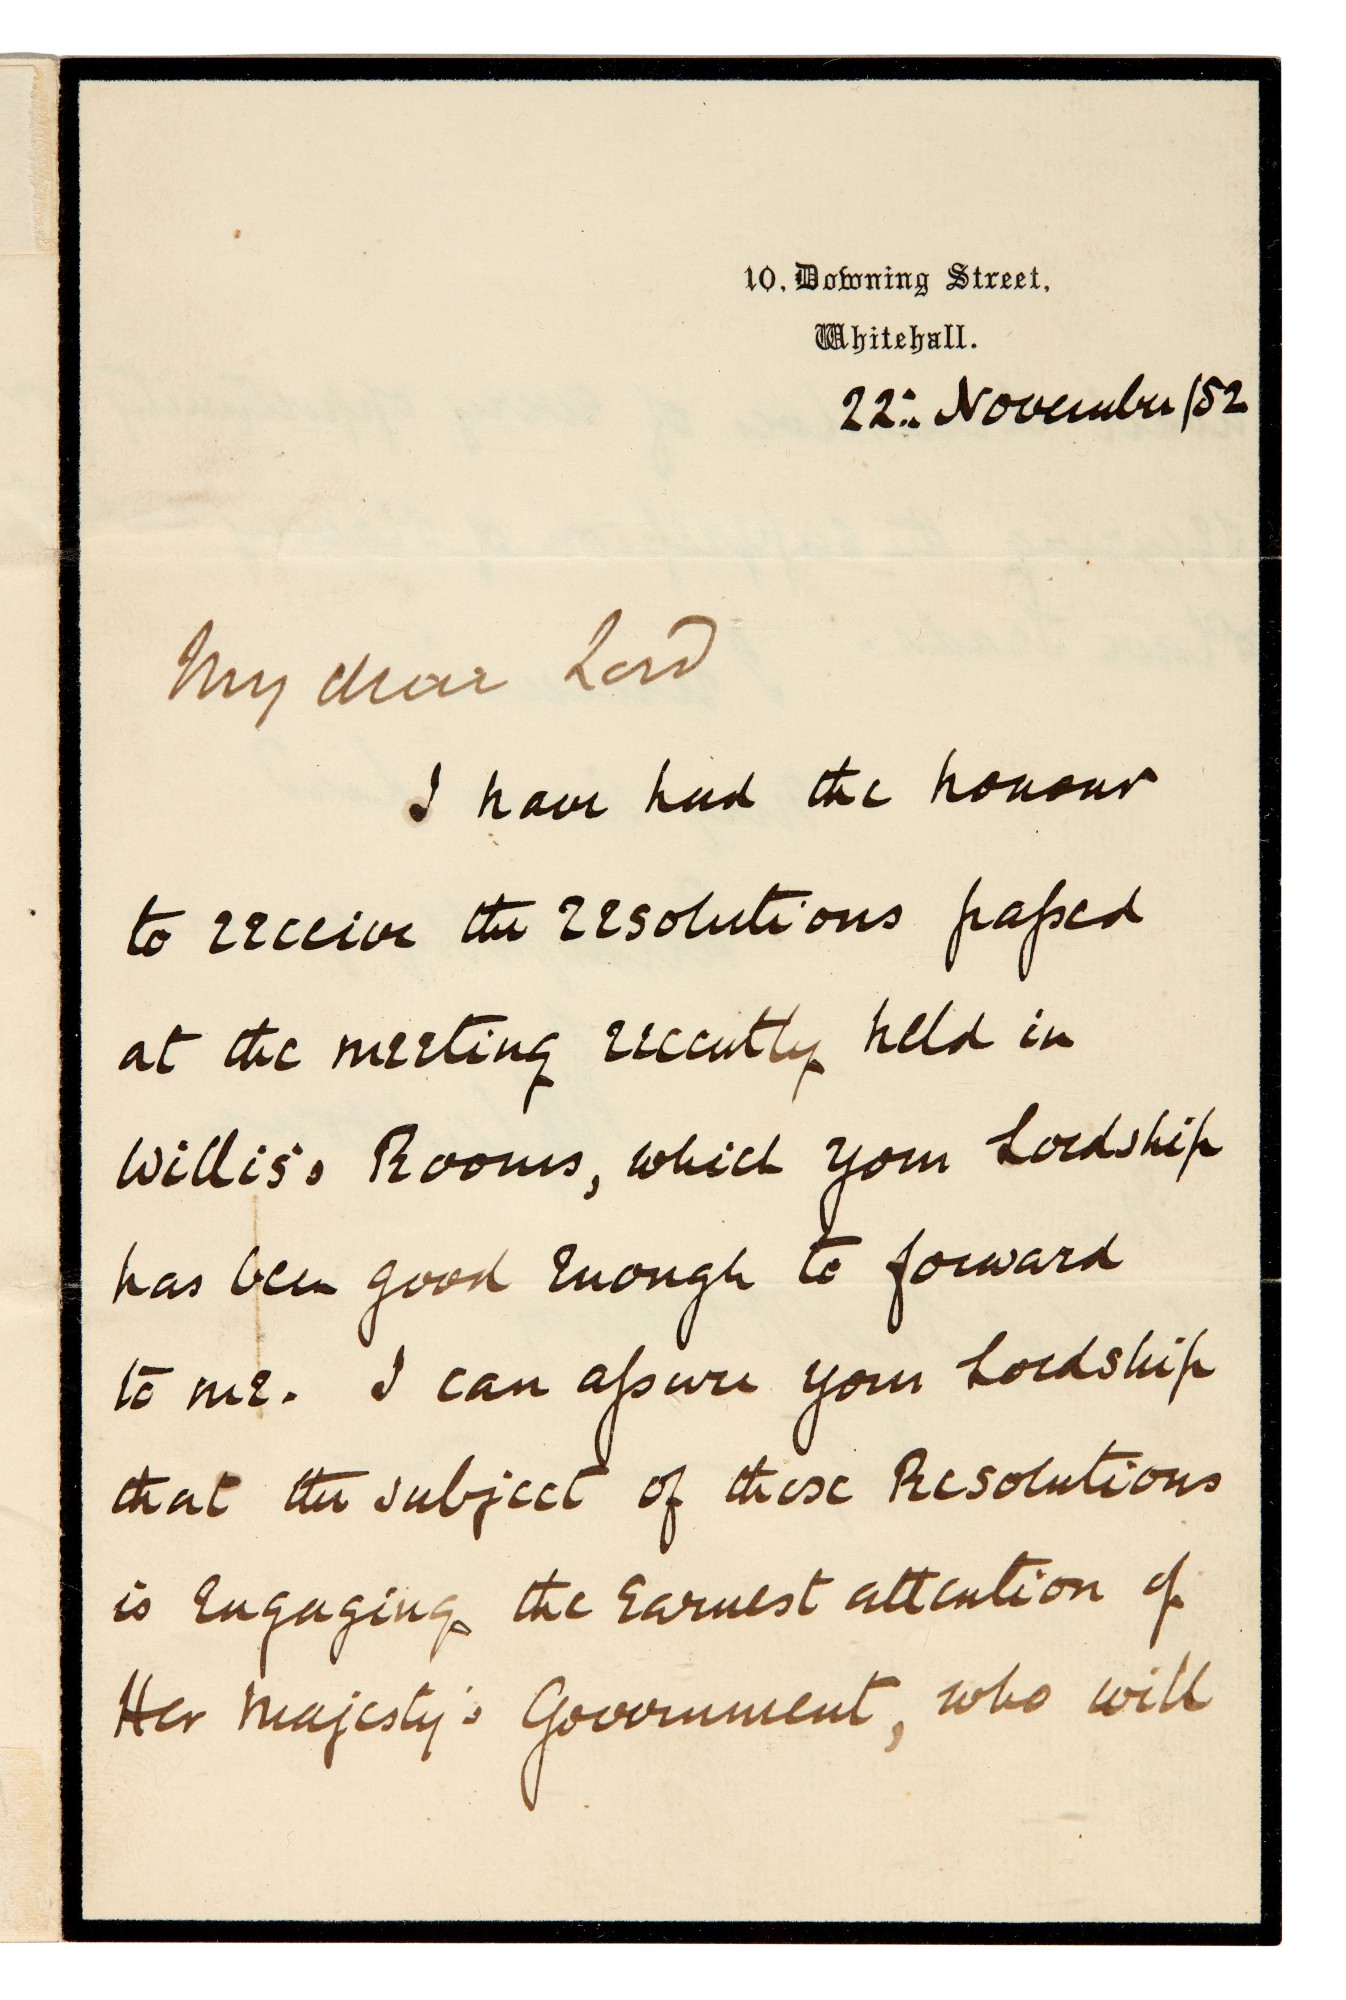 10, Downing Street,
Whitehall.
22: November /82
My dear Lord
I have had the honour
to receive the resolutions paſsed
at the meeting recently held in
Willis's Rooms, which your Lordship
has been good enough to forward
to me. I can aſsure your Lordship
that the subject of these Resolutions
is engaging the earnest attention of
Her Majesty's Government, who will